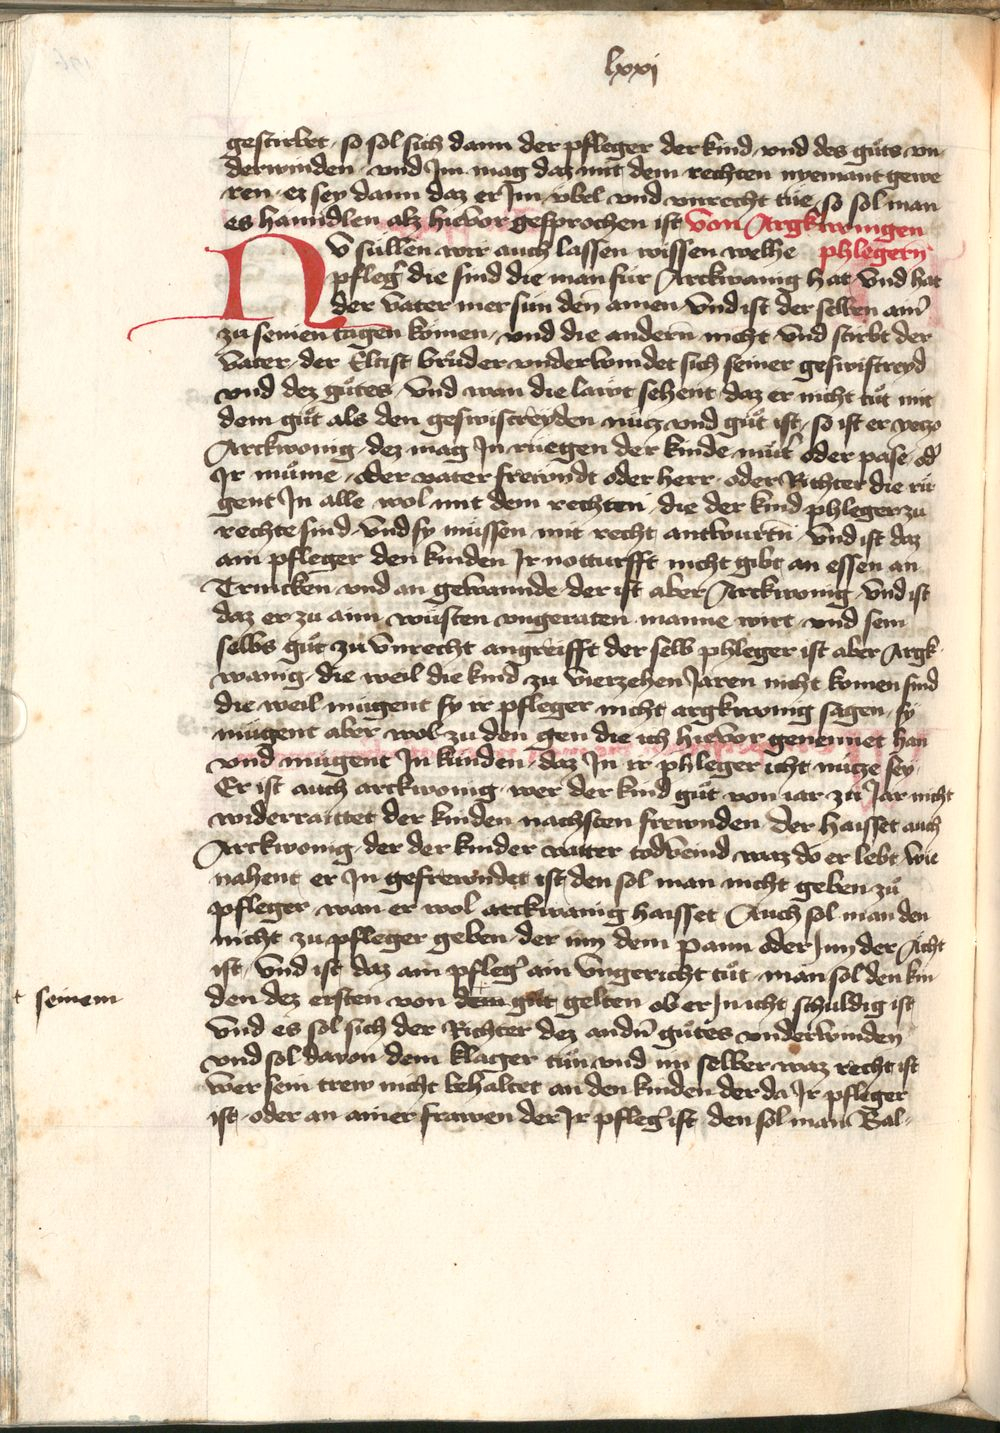 lxxi
gestirbet · so sol sich dann der pfleger der kind vnd des gůts vn
derwinden · vnd Im mag daz mit dem rechten nyemant gewe
ren · ez sey dann daz er Im vbel vnd vnrecht tüe so sol man
es hanndlen alz hieVor gesprochen ist Von Argkwonigen
phlegern
NV süllen wir auch lassen wissen welhe
pfleg̉ die sind die man für Arckwanig hat Vnd hat
der vater mer sün den ainen · Vnd ist der selben ain̉
zu seinen tagen komen · vnd die andern nicht Vnd stirbt der
Vater · der Eltist brůder vnderwindet sich seiner geswistreyd
vnd dez gůtes · Vnd wan die lawt sehent daz er nicht tůt mit
dem gůt als den geswistreyden nücz vnd gůt ist · so ist er yeczo
Arckwonig · dez mag In rüegen der kinde můt̉ oder pase · od̉
Ir můme · oder vater frewndt oder herr · oder Richter die rü
gent In alle wol mit dem rechten · die der kind phleger zu
rechte sind · Vnd sy müssen mit recht antwurtn̄ · Vnd ist daz
ain pfleger den kinden Ir notturfft nicht gibt an essen an
Trincken vnd an gewannde · der ist aber Arckwonig · Vnd ist
daz er zu aim wüsten vngeraten manne wirt · vnd sein
selbs gůt zu Vnrecht angreifft der selb phleger ist aber Argk
wanig · die weil die kind zu Vierzehen Jaren nicht komen sind
die weil mügent sy ir pfleger nicht argkwonig sagen · sy
mügent aber wol zu den gen die ich hieVor genennet han
vnd mügent In künden · daz In ir phleger icht nücze sey ·
Er ist auch arckwonig · wer der kind gůt von iar zu Jar nicht
widerraittet der kinden nachsten frewnden · der haisset auch
Arckwonig · der der kinder vatter todveind waz do er lebt wie
nahent er In gefrewndet ist den sol man nicht geben zů
pfleger wan er wol arckwanig haisset Auch sol man den
nicht zu pfleger geben · der inn dem pann oder Inn der Acht
ist · Vnd ist daz ain pfleg̉ ain Vngericht tůt · man sol den kin
den dez ersten von dem gůt gelten ob er In icht schuldig ist
† seinem
Vnd es sol sich der Richter dez andn̄ gůtes vnderwinden
vnd sol dauon dem klager tün vnd im selber waz recht ist
wer sein trew nicht behaltet an den kinden der da Ir pfleger
ist · oder an ainer frawen der Ir pfleg̉ ist · den sol man Bal-